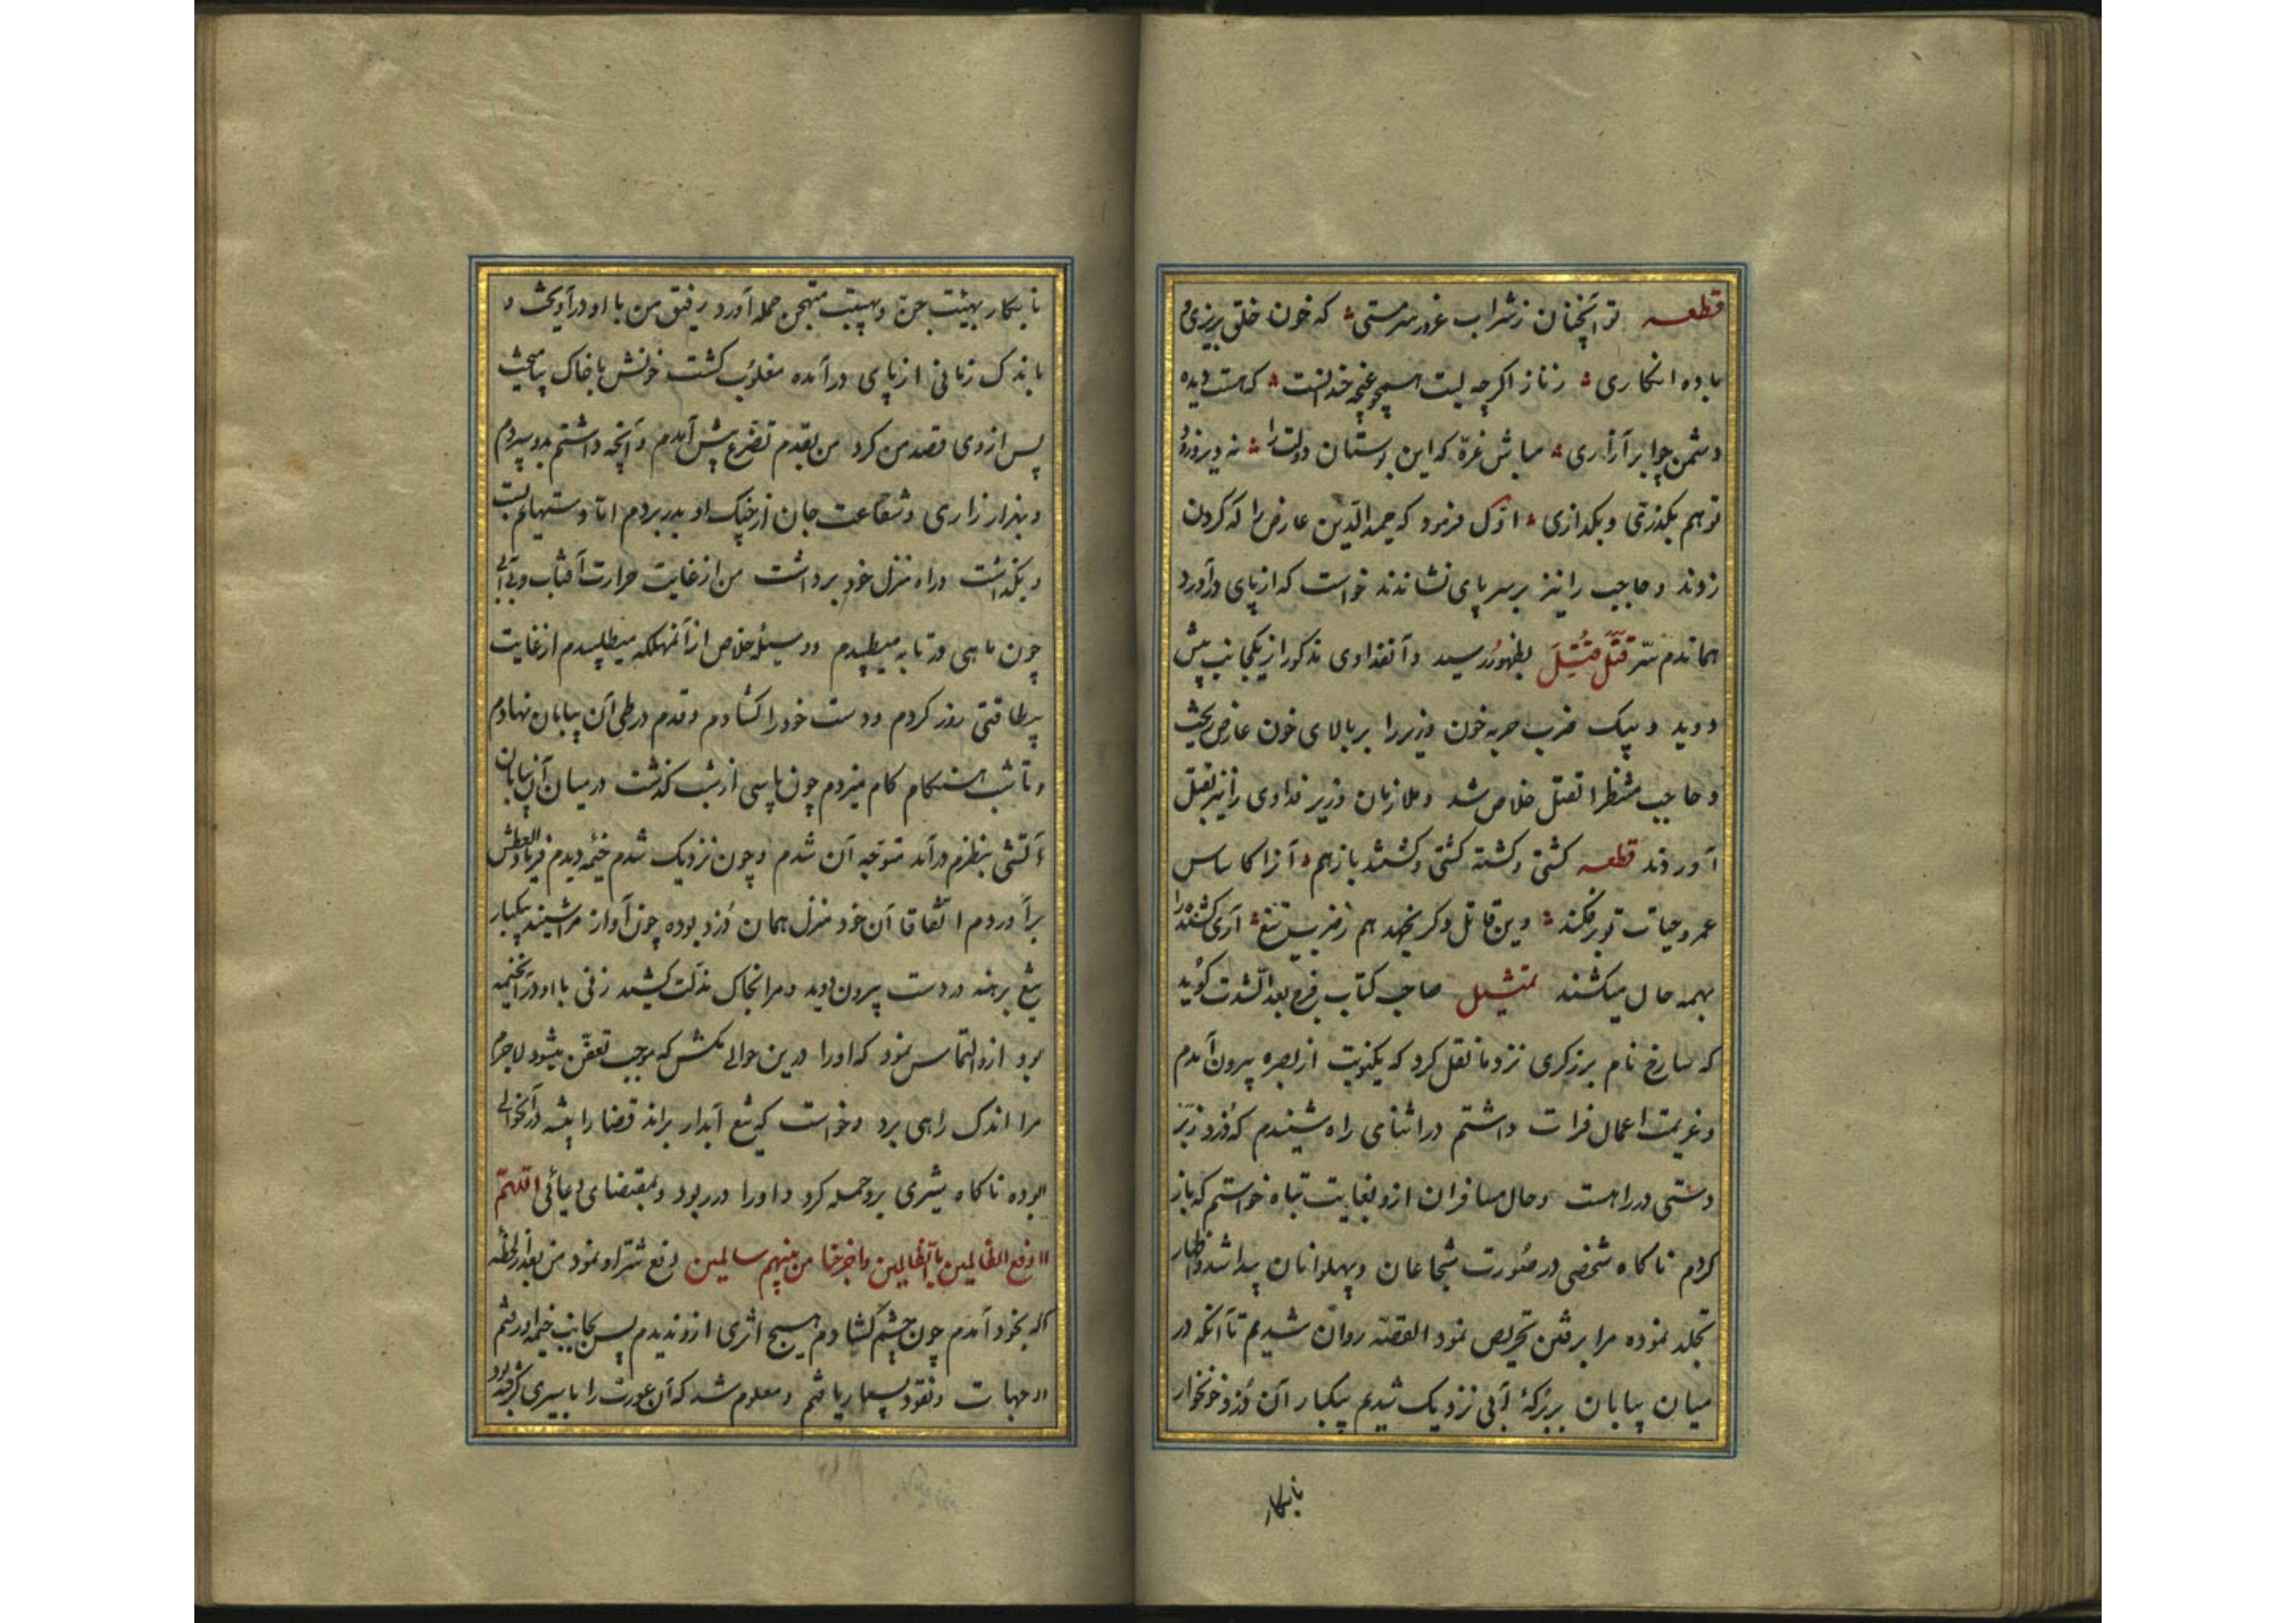 قطعه تو آنچنان ز شراب غرور سرمستی که خون خلق بریزی و
باده انکاری ز ناز اگرچه لبت همچو غنچه خندانست که هست دیده
دشمن چو ابر آزاری مباش غره که این بوستان دولت را نه دیر زود
تو هم بگذری و بگذاری اوّل فرمود که حمید الدین عارض را که گردن
زدند و حاجب را نیز بر سر پای نشاندند خواست که از پای درآورد
هماندم سرّ قَتَلَ قُتِلَ بظهور رسید و آنفداوی مذکور از یکجانب پیش
دوید و بیک ضرب حربه خون وزیر را بر بالای خون عارض ریخت
و حاجب منتظر القتل خلاص شد و ملازمان وزیر فداوی را نیز بقتل
آوردند قطعه کشتی و کشته کشتی و کشتند باز هم آنرا کاساس
عمر و حیات تو برفکند وین قاتل وگر نجهد هم ز ضرب تیغ آری کشنده را
بهمه حال میکشند تمثیل صاحب کتاب فرج بعد الشدت گوید
که سارخ نام برزکری نزد ما نقل کرد که یکنوبت از بصره بیرون آمدم
و عزیمت اعمال فرات داشتم در اثنای راه شنیدم که دزد زبر
دستی در راهست و حال مسافران ازو بغایت تباه خواستم که باز
کردم ناکاه شخصی در صورت شجاعان و پهلوانان پیدا شد و اظهار
تجلد نموده مرا برفتن تحریص نمود القصه روان شدیم تا آنکه در
میان بیابان ببرکهٔ آبی نزدیک شدیم بیکبار آن دزد خونخوار
نابکار
نابکار بهیئت جن و هیبت حمله آورد رفیق من با او درآویخت و
باندک زمانی از پای درآمده مغلوب کشت خونش با خاک بیامیخت
پس از وی قصد من کرد من بقدم تضرع پیش آمدم و آنچه داشتم بدو سپردم
و بهزار زاری و شفاعت جان از چنک او بدر بردم اما دستهایم ببست
و بگذاشت و راه منزل خود برداشت من از غایت حرارت آفتاب و بی‌آبی
چون ماهی در تابه میطپیدم و وسیلهٔ خلاص از آنمهلکه میطلبیدم از غایت
بیطاقتی زور کردم و دست خود را کشادم و قدم در طی آن بیابان نهادم
و تا شب هنکام کام میزدم چون پاسی از شب کذشت در میان آن بیابان
آتشی بنظرم درآمد متوجه آن شدم و چون نزدیک شدم خیمه دیدم فریاد العطش
برآوردم اتفاقا آن خود منزل همان دزد بوده چون آواز مرا شنید بیکبار
تیغ برهنه در دست بیرون دوید و مرا بخاک مذلت کشید زنی با او در آنخیمه
بود ازو التماس نمود که او را درین حوالی مکش که موجب تعفن میشود لاجرم
مرا اندک راهی برد و خواست که تیغ آبدار براند قضا را بیشه در آنحوالی
بوده ناکاه شیری برو حمله کرد و او را در ربود و بمقتضای دعائی اللهم
ادفع الظالمین بالظالمین واخرجنا من بینهم سالمین دفع شر او نمود من بعد از لحظه
که بخود آمدم چون چشم کشادم هیچ اثری ازو ندیدم پس بجانب خیمه او رفتم
و جهات و نقود بسیار یافتم و معلوم شد که آن عورت را باسیری گرفته بود